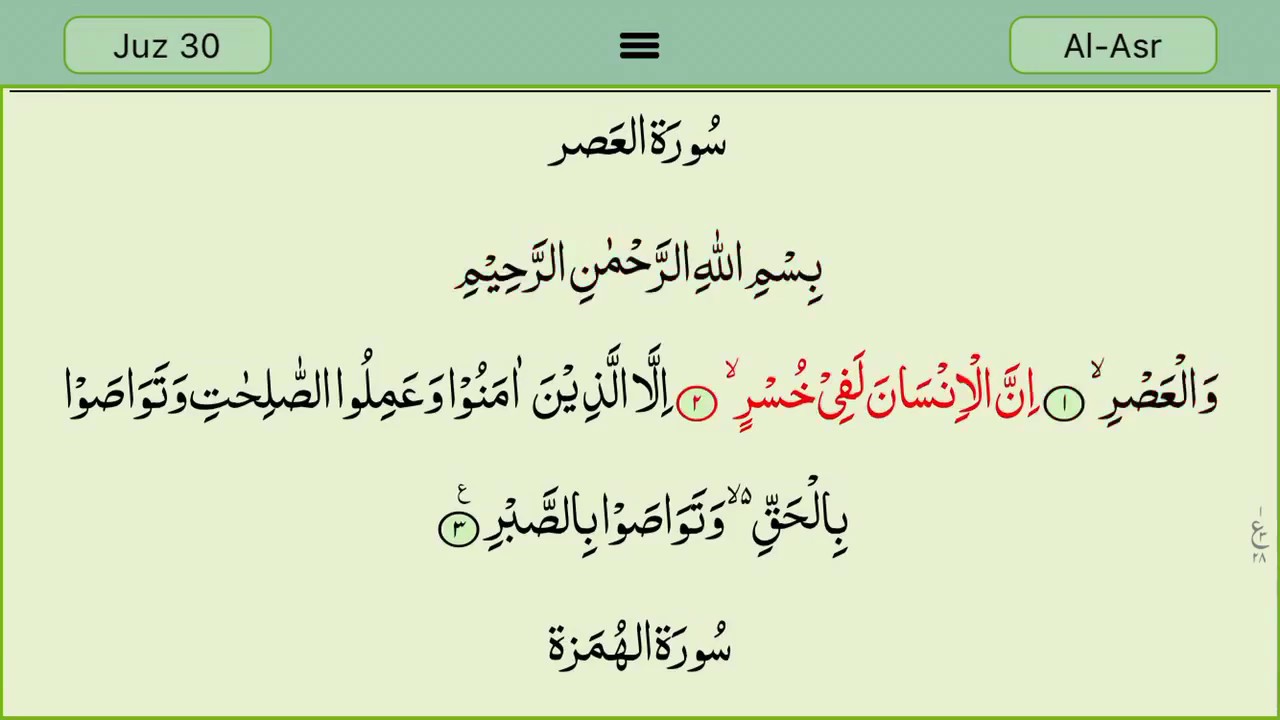 Juz 30
Al-Asr
سُورَة العَصر
بِسْمِ اللّٰهِ الرَّحْمٰنِ الرَّحِيْمِ
وَالْعَصْرِ ۙ ۱ اِنَّ الْاِنْسَانَ لَفِیْ خُسْرٍ ۙ ۲ اِلَّا الَّذِيْنَ اٰمَنُوْا وَعَمِلُوا الصّٰلِحٰتِ وَتَوَاصَوْا
بِالْحَقِّ ۵ۙ وَتَوَاصَوْا بِالصَّبْرِ ۳ ع
۱
ع ۳
۲۸
سُورَة الهُمَزة